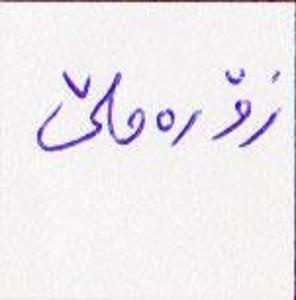 زۆرەملێ